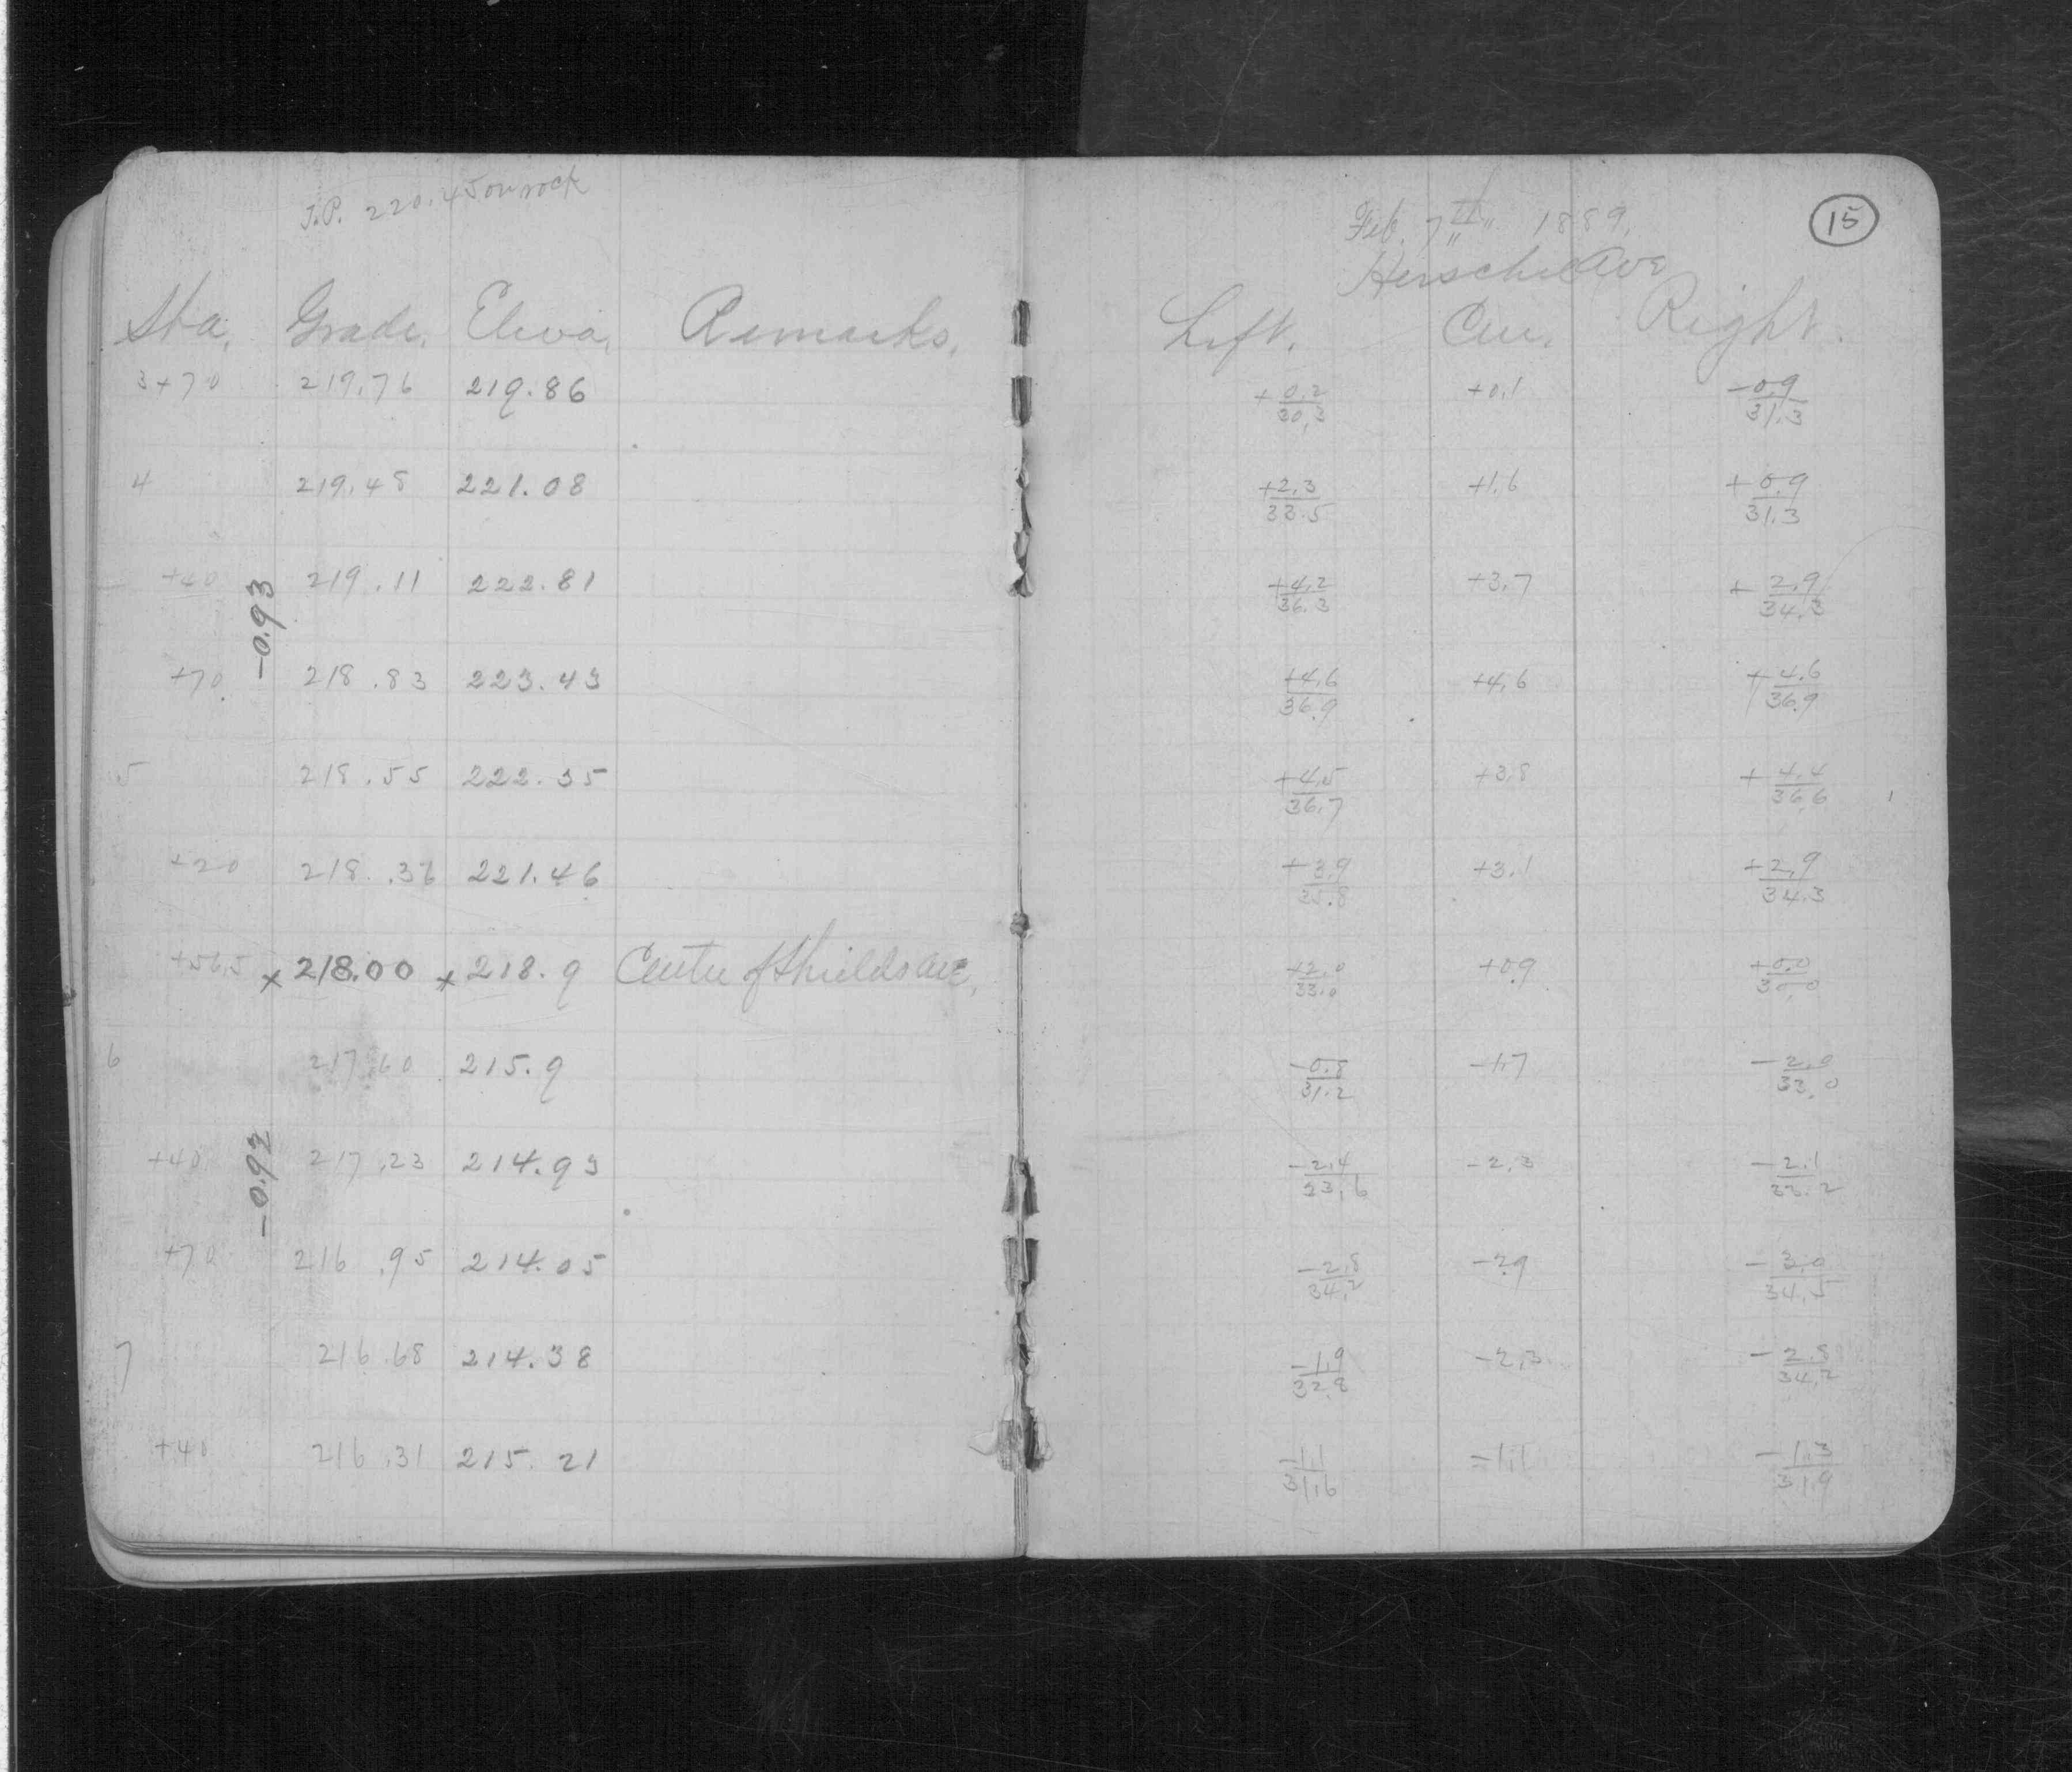 T.P. 220.45 on rock
Sta. Grade. Eleva. Remarks.
3+70 219.76 219.86
4 219.48 221.08
+40 219.11 222.81
-0.93
+70 218.83 223.43
5 218.55 222.35
+20 218.36 221.46
+56.5 x 218.00 x 218.9 Center of Shields ave.
6 217.60 215.9
+40 217.23 214.93
-0.92
+70 216.95 214.05
7 216.68 214.38
+40 216.31 215.21
15
Feb. 7th 1889.
Herschel Ave
Left. Cen. Right.
+0.2/30.3 +0.1 -0.9/31.3
+2.3/33.5 +1.6 +0.9/31.3
+4.2/36.3 +3.7 +2.9/34.3
+4.6/36.9 +4.6 +4.6/36.9
+4.5/36.7 +3.8 +4.4/36.6
+3.9/35.8 +3.1 +2.9/34.3
+2.0/33.0 +0.9 +0.0/30.0
-0.8/31.2 -1.7 -2.0/33.0
-2.4/33.6 -2.3 -2.1/33.2
-2.8/34.2 -2.9 -3.0/34.5
-1.9/32.8 -2.3 -2.8/34.2
-1.1/31.6 -1.1 -1.3/31.9